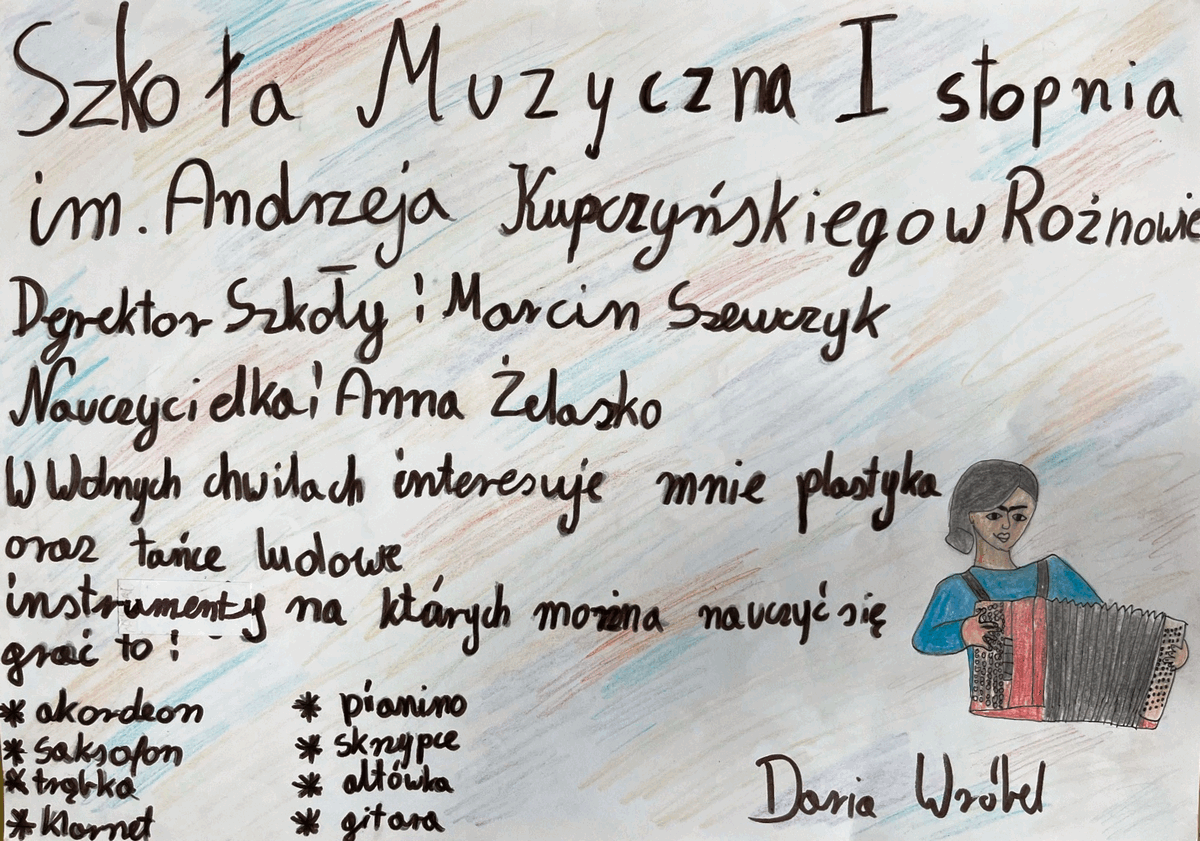 Szkoła Muzyczna I stopnia
im. Andrzeja Kupczyńskiego w Rożnowic
Dyrektor Szkoły : Marcin Szewczyk
Nauczycielka : Anna Żelasko
W Wolnych chwilach interesuje mnie plastyka
oraz tańce ludowe
instrumenty na których można nauczyć się
grać to :
* akordeon
* saksofon
* trąbka
* klarnet
* pianino
* skrzypce
* altówka
* gitara
Daria Wróbel